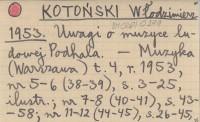 KOTOŃSKI Włodzimierz
1953. Uwagi o muzyce lu-
dowej Podhala. — Muzyka
(Warszawa) t. 4, r. 1953,
nr 5-6 (38-39), s. 3-25,
ilustr.; nr 7-8 (40-41), s. 43-
-58; nr 11-12 (44-45), s. 26-45,